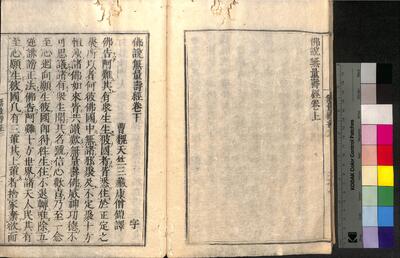 佛說無量壽經卷上
佛說無量壽經卷下
曹魏天竺三藏康僧鎧譯 字
佛告阿難其有衆生生彼國者皆悉住於正定之
聚所以者何彼佛國中無諸邪聚及不定聚十方
恒沙諸佛如來皆共讚歎無量壽佛威神功德不
可思議諸有衆生聞其名號信心歡喜乃至一念
至心廻向願生彼國即得往生住不退轉唯除五
逆誹謗正法佛告阿難十方世界諸天人民其有
至心願生彼國凡有三輩其上輩者捨家棄欲而
KODAK Color Control Patches